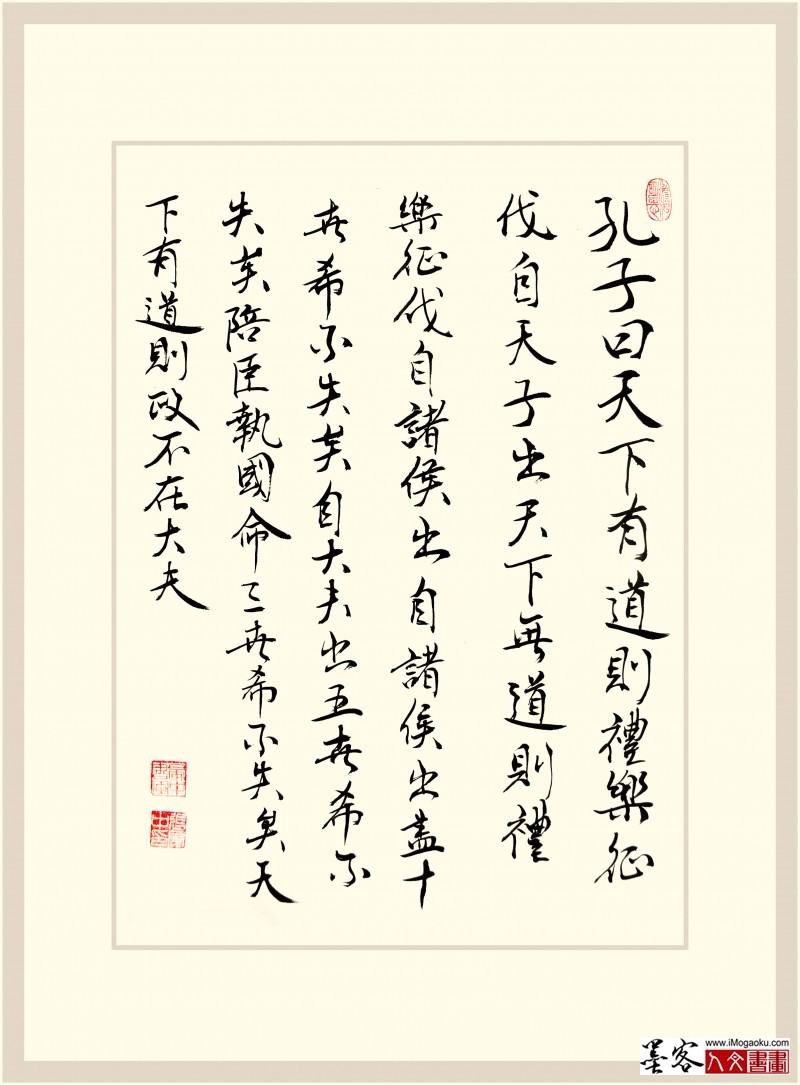 孔子曰天下有道則禮樂征
伐自天子出天下無道則禮
樂征伐自諸侯出自諸侯出蓋十
世希不失矣自大夫出五世希不
失矣陪臣執國命三世希不失矣天
下有道則政不在大夫
墨客
www.iMogaoku.com
人文書畫